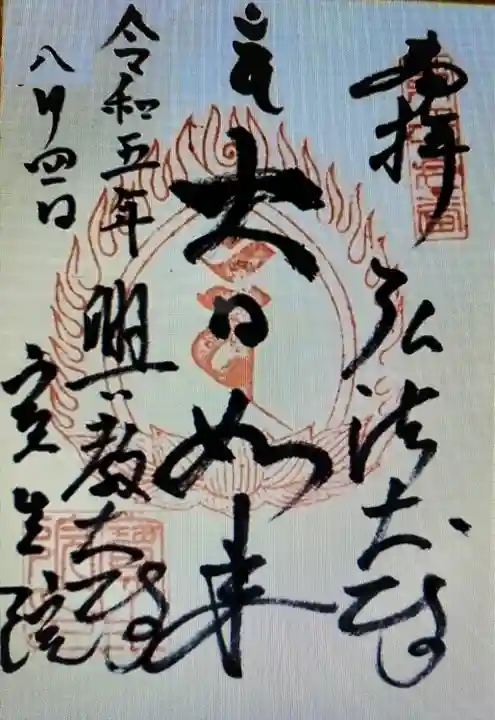 奉拝
弘法大師
大日如来
興教大師
令和五年
八月四日
宝生院